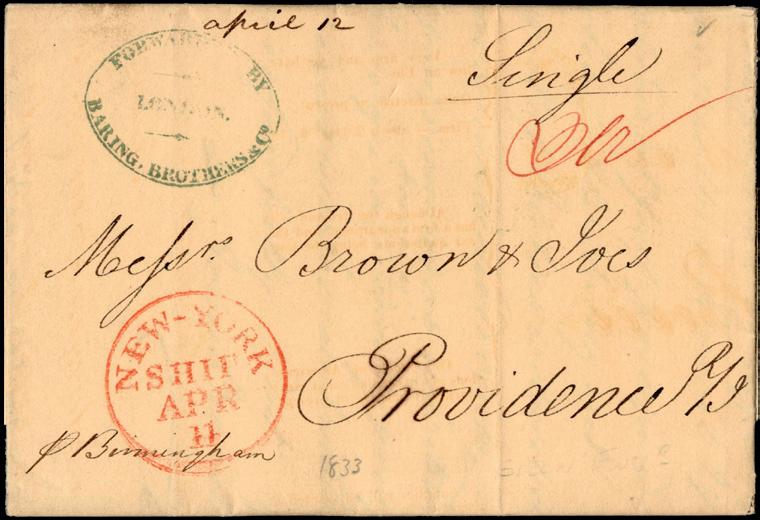 april 12
FORWARDED BY
LONDON.
BARING, BROTHERS & Co
Single
Messrs. Brown & Ives
Providence R/I
NEW-YORK
SHIP
APR
11
p Birmingham
1833